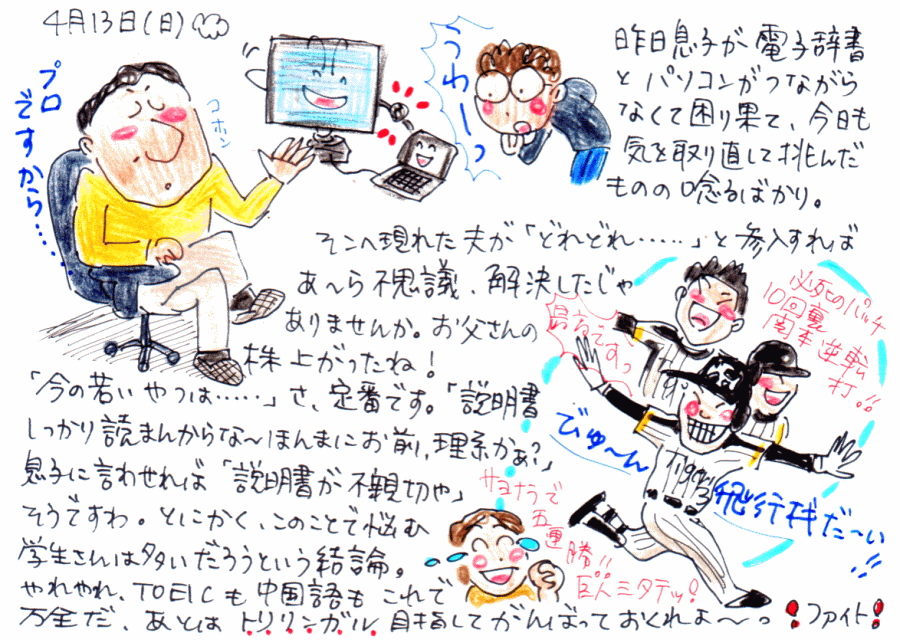 4月13日(日)
プロ
ですから・・・・
コホン
うわーっ
昨日息子が電子辞書
とパソコンがつながら
なくて困り果て、今日も
気を取り直して挑んだ
ものの唸るばかり。
そこへ現れた夫が「どれどれ・・・・・」と参入すれば
あ〜ら不思議、解決したじゃ
ありませんか。お父さんの
株上がったね!
「今の若いやつは・・・・・・」さ、定番です。「説明書
しっかり読まんからな〜ほんまにお前、理系かぁ?」
息子に言わせれば「説明書が不親切や」
そうですわ。とにかく、このことで悩む
学生さんは多いだろうという結論。
やれやれ、TOEICも中国語もこれで
万全だ、あとはトリリンガル目指してがんばっておくれよ〜っ
ファイト!
最高ですっ
必死のパッチ
10回裏
関本逆転
打!!
びゅ〜ん
Tigers
Tigers 3
飛行機だ〜い
サヨナラで
五連勝!!
巨人ミタテッ!